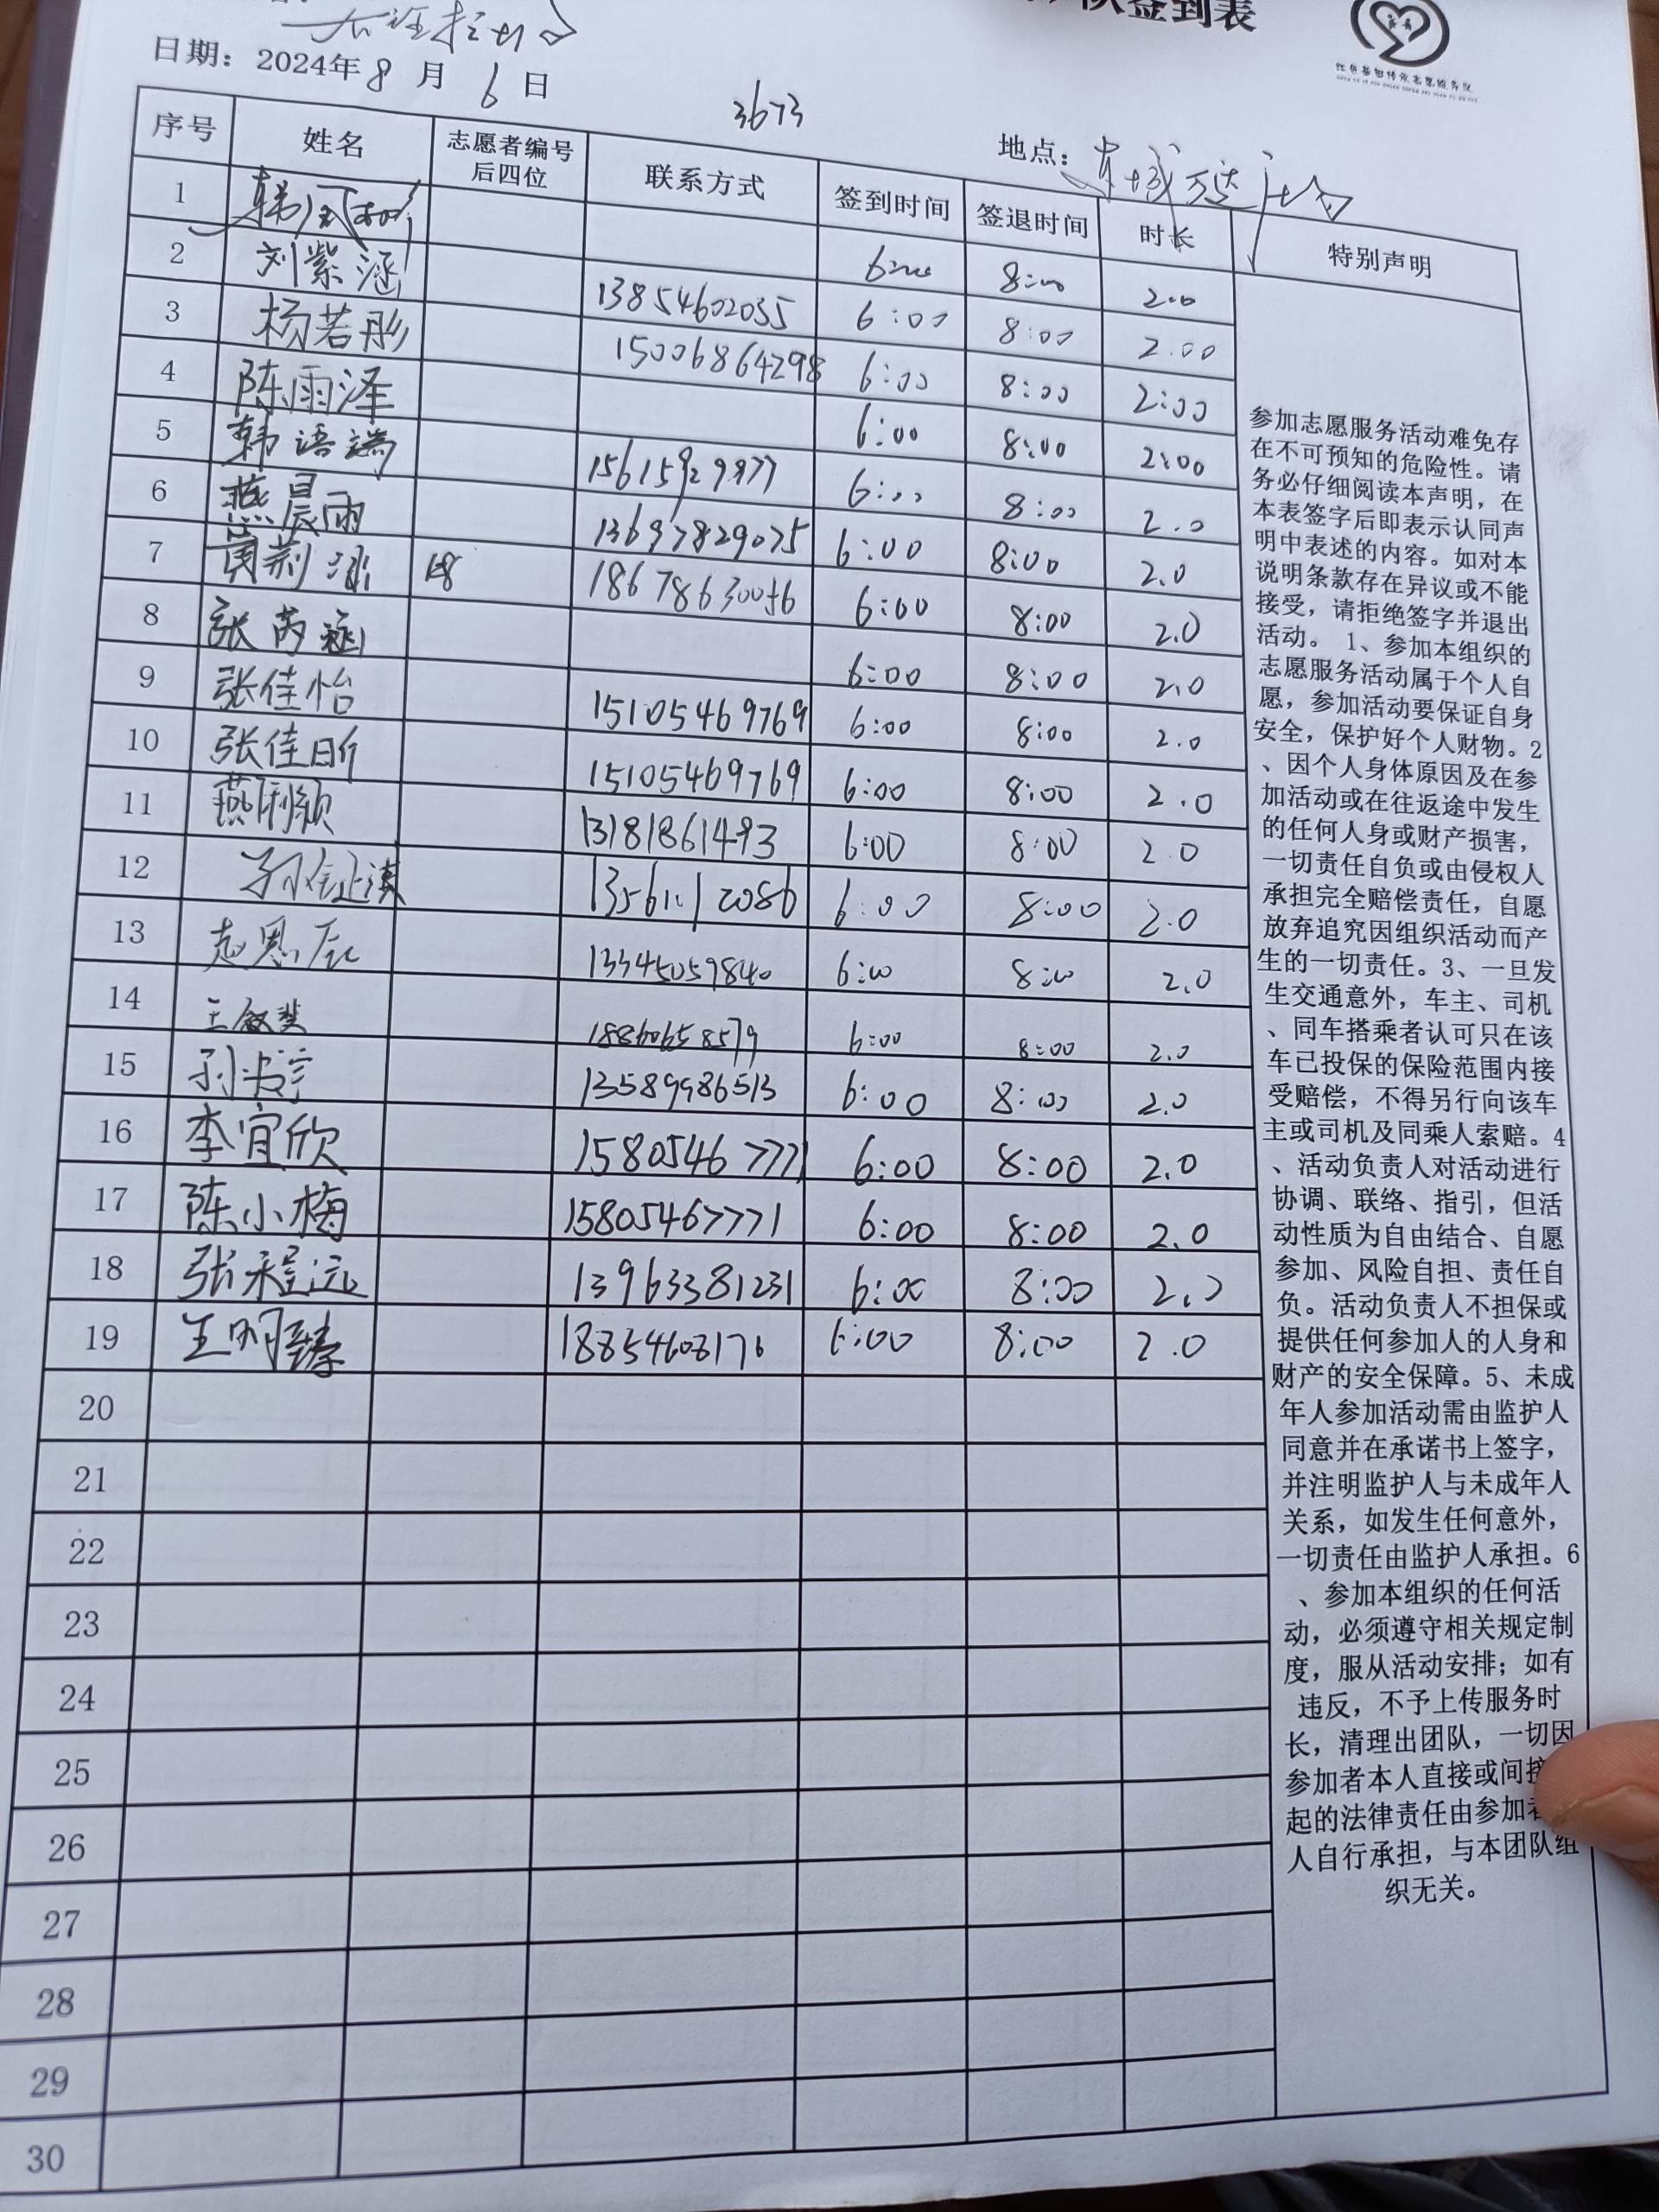 队签到表
日期：2024年8月6日
3673
地点：
序号 姓名 志愿者编号后四位 联系方式 签到时间 签退时间 时长 特别声明
1 6:00 8:00 2.0
2 刘紫涵 13854602035 6:00 8:00 2.00
3 杨若彤 15006864298 6:00 8:00 2:00
4 陈雨泽 6:00 8:00 2:00
5 韩语端 15615929977 6:00 8:00 2.0
6 燕晨雨 13697829075 6:00 8:00 2.0
7 18678630056 6:00 8:00 2.0
8 张芮涵 6:00 8:00 2.0
9 张佳怡 15105469769 6:00 8:00 2.0
10 张佳昕 15105469769 6:00 8:00 2.0
11 13181861493 6:00 8:00 2.0
12 6:00 8:00 2.0
13 赵恩辰 13345059840 6:00 8:00 2.0
14 6:00 8:00 2.0
15 13589986513 6:00 8:00 2.0
16 李宜欣 15805467771 6:00 8:00 2.0
17 陈小梅 15805467771 6:00 8:00 2.0
18 张程远 13963381231 6:00 8:00 2.0
19 王明臻 18854608176 6:00 8:00 2.0
20
21
22
23
24
25
26
27
28
29
30
参加志愿服务活动难免存
在不可预知的危险性。请
务必仔细阅读本声明，在
本表签字后即表示认同声
明中表述的内容。如对本
说明条款存在异议或不能
接受，请拒绝签字并退出
活动。1、参加本组织的
志愿服务活动属于个人自
愿，参加活动要保证自身
安全，保护好个人财物。2
、因个人身体原因及在参
加活动或在往返途中发生
的任何人身或财产损害，
一切责任自负或由侵权人
承担完全赔偿责任，自愿
放弃追究因组织活动而产
生的一切责任。3、一旦发
生交通意外，车主、司机
、同车搭乘者认可只在该
车已投保的保险范围内接
受赔偿，不得另行向该车
主或司机及同乘人索赔。4
、活动负责人对活动进行
协调、联络、指引，但活
动性质为自由结合、自愿
参加、风险自担、责任自
负。活动负责人不担保或
提供任何参加人的人身和
财产的安全保障。5、未成
年人参加活动需由监护人
同意并在承诺书上签字，
并注明监护人与未成年人
关系，如发生任何意外，
一切责任由监护人承担。6
、参加本组织的任何活
动，必须遵守相关规定制
度，服从活动安排；如有
违反，不予上传服务时
长，清理出团队，一切因
参加者本人直接或间接
起的法律责任由参加者
人自行承担，与本团队组
织无关。